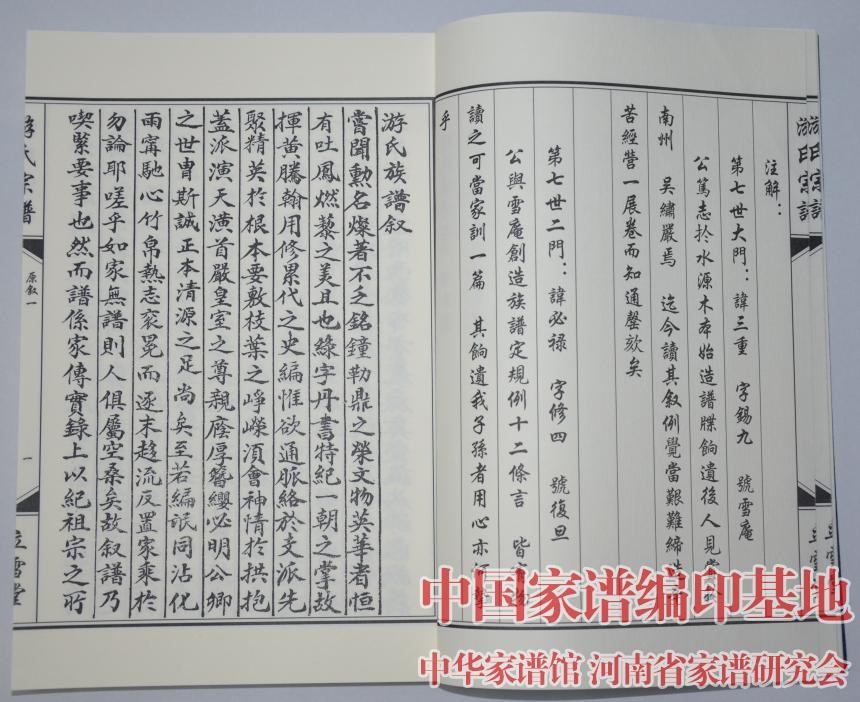 注解：
第七世大門：諱三重 字錫九 號雪庵
公篤志扵水源木本始造譜牒餉遺後人見
南州 吴繡嚴焉 迄今讀其叙例覺當艱難締
苦經營一展卷而知通罄欬矣
第七世二門：諱必禄 字修四 號復旦
公與雪庵創造族譜定規例十二條言 皆
讀之可當家訓一篇 其餉遺我子孫者用心亦何摯
乎
游氏族譜叙
嘗聞勲名燦著不乏銘鐘勒鼎之榮文物英華者恒
有吐鳳燃藜之美且也綠字丹書特紀一朝之掌故
揮黄騰翰用修累代之史編惟欲通脈絡於支派先
聚精英於根本要敷枝葉之崢嶸湏會神情於拱抱
蓋派演天潢首嚴皇室之尊親廕厚簪纓必明公卿
之世胄斯誠正本清源之足尚矣至若編氓同沾化
雨甯馳心竹帛熱志衮冕而逐末趍流反置家乘於
勿論耶嗟乎如家無譜則人俱屬空桑矣故叙譜乃
喫緊要事也然而譜係家傳實錄上以紀祖宗之所
游氏宗譜
原叙一
一
立雪堂
中国家谱编印基地
中华家谱馆 河南省家谱研究会